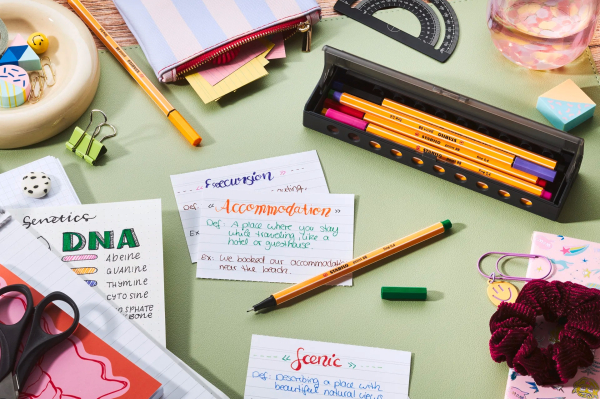 Excursion
Def:
Ex:
« Accommodation »
Def: A place where you stay
while traveling, like a
hotel or guesthouse.
Ex: We booked our accommodati
near the beach.
Genetics
DNA
GUANINE
THYMINE
CYTOSINE
« Scenic »
Def: Describing a place with
beautiful natural views
STABILO